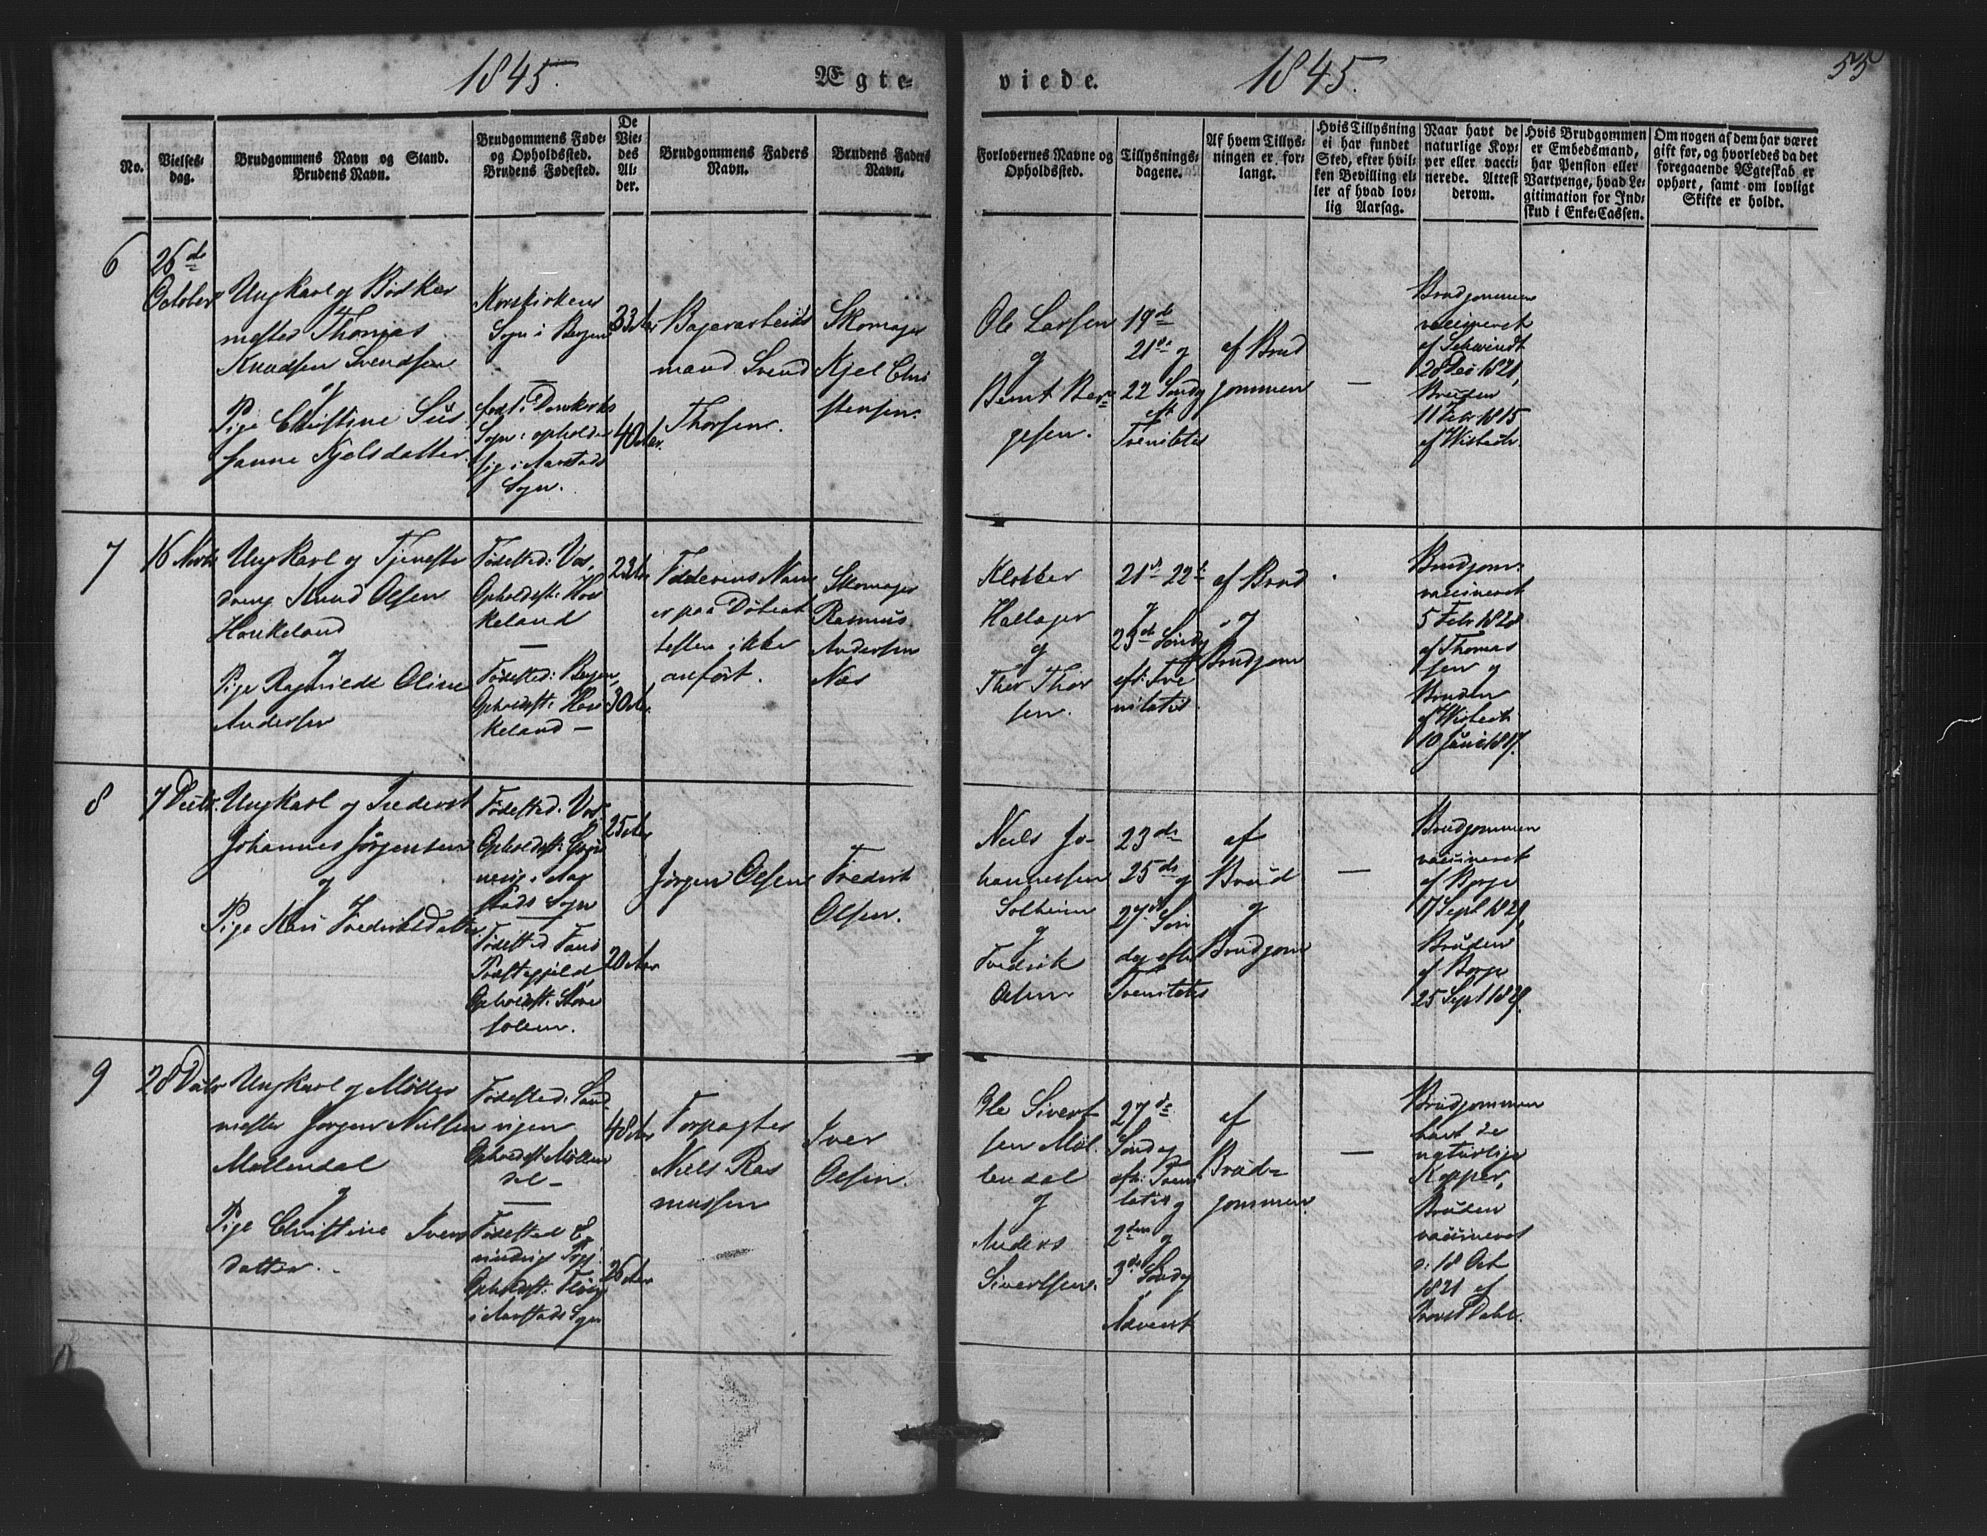 1845. Ægte-
viede. 1845. 55
No.
Vielses-
dag.
Brudgommens Navn og Stand.
Brudens Navn.
Brudgommens Føde-
og Opholdssted.
Brudens Fødested.
De
Vie-
des
Al-
der.
Brudgommens Faders
Navn.
Brudens Faders
Navn.
Forlovernes Navne og
Opholdssted.
Tillysnings-
dagene.
Af hvem Tillys-
ningen er for-
langt.
Hvis Tillysning
ei har fundet
Sted, efter hvil-
ken Bevilling el-
ler af hvad lov-
lig Aarsag.
Naar havt de
naturlige Kop-
per eller vacci-
nerede. Attest
derom.
Hvis Brudgommen
er Embedsmand,
har Pension eller
Vartpenge, hvad Le-
gitimation for Ind-
skud i Enke-Cassen.
Om nogen af dem har været
gift før, og hvorledes da det
foregaaende Ægteskab er
ophørt, samt om lovligt
Skifte er holdt.
6
26de
October
Ungkarl og Bødker
mester Thomas
Knudsen Svendsen
og
Pige Christine Sus
sanne Kjelsdatter
Korskirkens
Sogn i Bergen
—
født i Domkirks
Sogn, opholder
sig i Aarstads
Sogn.
33 Aar
40 Aar
Bagerarbeids
mand Svend
Thorsen.
Skomager
Kjel Chri
stensen.
Ole Larsen
og
Bernt Ber-
gesen.
19de
21de og
22 Søndg
eft
Trenitatis
af Brud
gommen
—
Brudgommen
vaccineret
af Schwindt
28 1821,
Bruden
11 Febr 1815
af Wisbech
7
16 Novbr
Ungkarl og Tjeneste
dreng Knud Olsen
Haukeland
og
Pige Ragnilde Oline
Andersen
Fødested: Vos,
Opholdsst: Hou
keland
—
Fødested: Bergen,
Opholdsst: Hou
keland —
23 Aar
30 Aar
Fadderens Navn
er paa Døbeat
testen ikke
anført.
Skomager
Rasmus
Andersen
Næs
Klokker
Hallager
og
Thor Thor
sen.
21de 22de
og
23de Søndg
eft: Tre
nitatis
af Brud
og
Brudgom
Brudgom:
vaccineret
5 Febr 1828
af Thomas
sen og
Bruden
af Wisbech
10 Juni 1817.
8
7 Decbr.
Ungkarl og Frederik
Johannes Jørgensen
og
Pige Kari Fredriksdatter
Fødested: Vos,
Opholdsst:
Aar
stads Sogn
—
Fødested Fane
Præstegjeld
Opholdsst: Store
solem.
25 Aar
20 Aar
Jørgen Olsen
Fredrik
Olsen.
Niels Jo-
hannessen
Solheim
og
Fredrik
Olsen
23de
25de og
27de Søn
dag efter
Trenitatis
af
Brud
og
Brudgom
—
Brudgommen
vaccineret
af Borge
17 Sept 1829,
Bruden
af Borge
25 Sept 1829.
9
28 Decbr
Ungkarl og Møller
mester Jørgen Nielsen
Møllendal
og
Pige Christine Ivers
datter.
Fødested: Sand
vigen
Opholdsst: Møllen
dal —
—
Fødested E
vindvig Prgj.
Opholdsst: Fløen
i Aarstads Sogn
48 Aar
26 Aar
Forpagter
Niels Ras
mussen
Iver
Olsen.
Ole Sivert
sen Møl
lendal
og
Anders
Sivertsen.
27de
Søndag
eft: Treni
tatis og
2den og
3de Søndg
i
Advent
af
Brud-
gommen
—
Brudgommen
havt de
naturlige
Kopper,
Bruden
vaccineret
d: 18 Oct
1821 af
Provst Dahl.